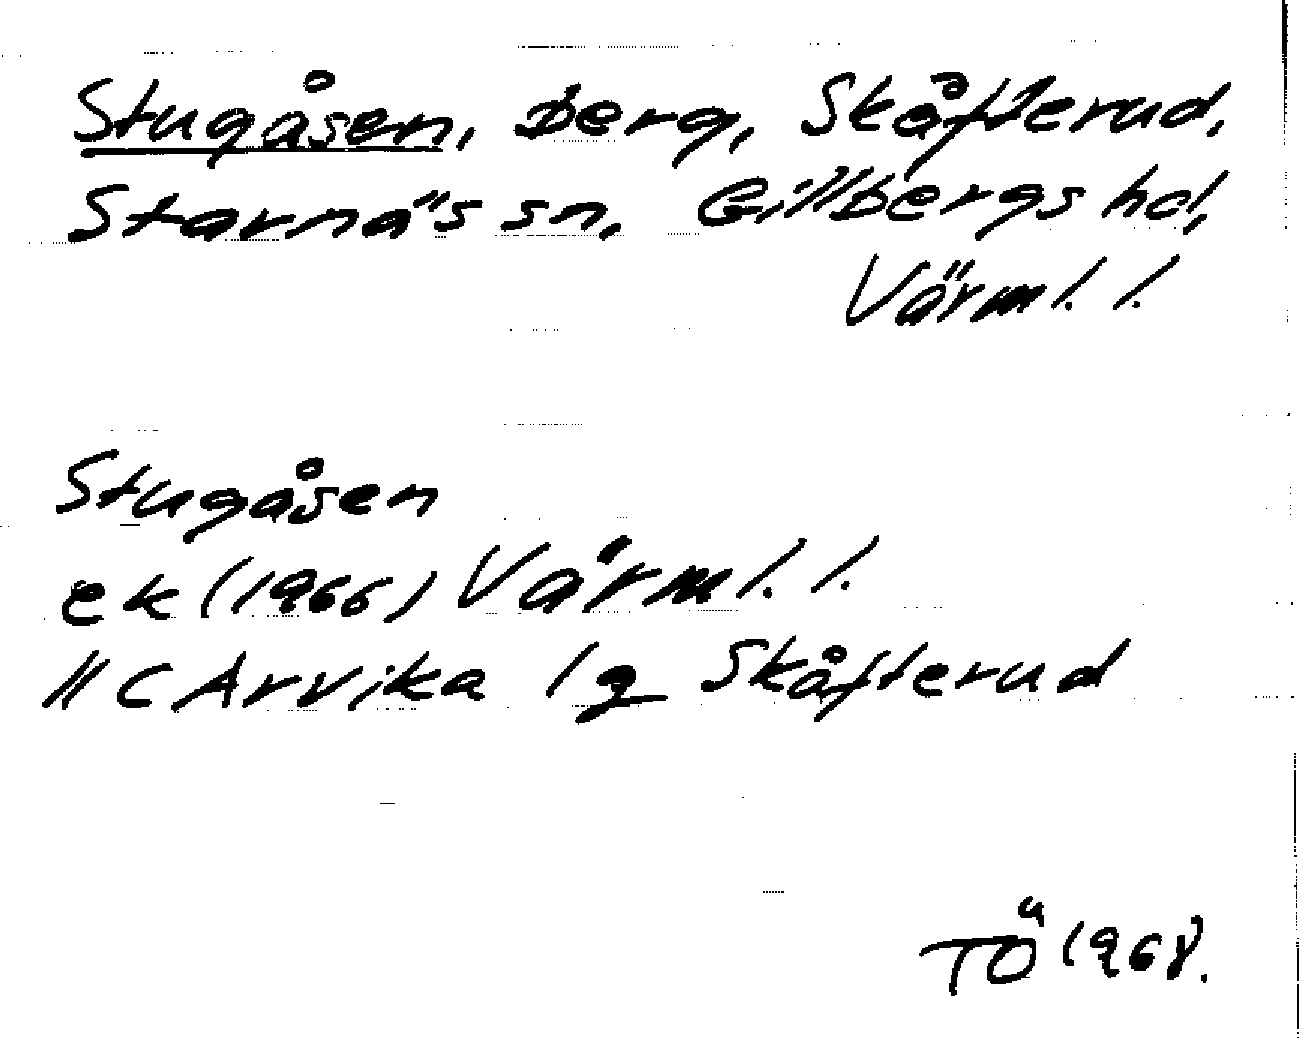 Stugåsen, berg, Skåfterud,
Stavnäs sn, Gillbergs hd,
Värml. l.
Stugåsen
ek (1966) Värml. l.
11 C Arvika 1g Skåfterud
TÖ 1968.